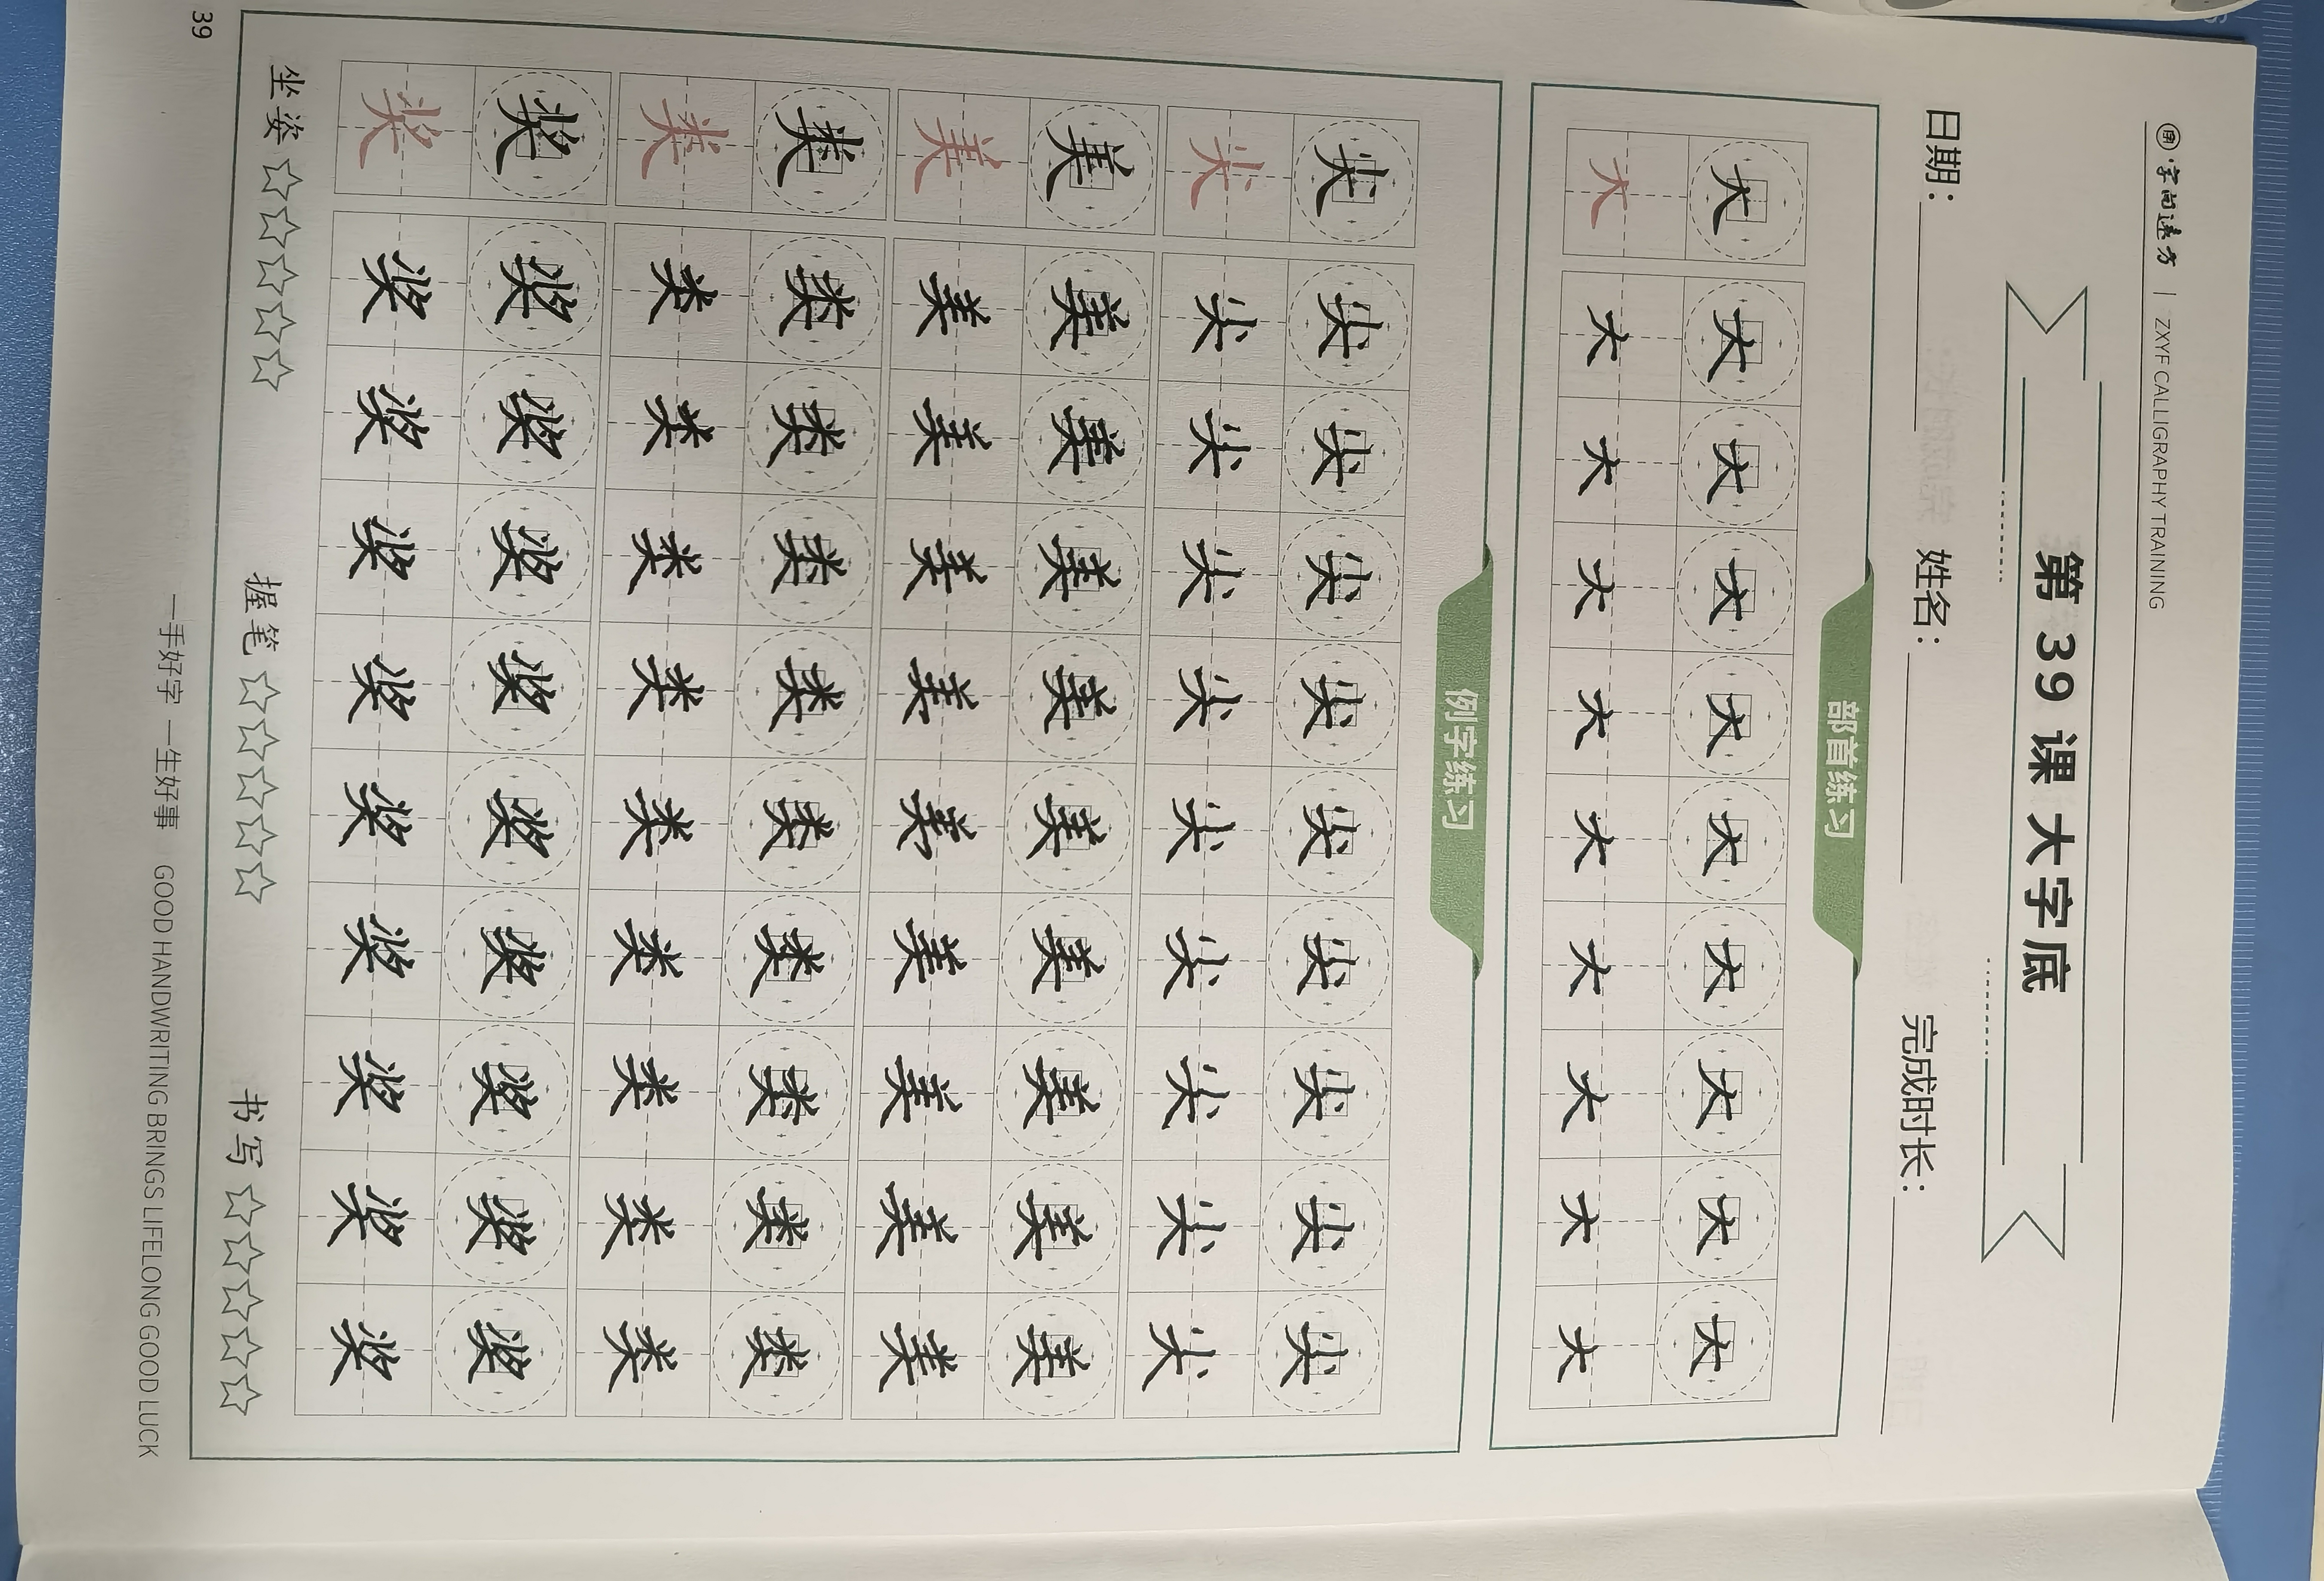 字向遠方 | ZXYF CALLIGRAPHY TRAINING
第 39 课 大字底
日期： 姓名： 完成时长：
部首练习
大 大 大 大 大 大 大 大 大 大
大 大 大 大 大 大 大 大 大 大
例字练习
尖 尖 尖 尖 尖 尖 尖 尖 尖 尖
尖 尖 尖 尖 尖 尖 尖 尖 尖 尖
美 美 美 美 美 美 美 美 美 美
美 美 美 美 美 美 美 美 美 美
类 类 类 类 类 类 类 类 类 类
类 类 类 类 类 类 类 类 类 类
奖 奖 奖 奖 奖 奖 奖 奖 奖 奖
奖 奖 奖 奖 奖 奖 奖 奖 奖 奖
坐姿 ☆☆☆☆☆ 握笔 ☆☆☆☆☆ 书写 ☆☆☆☆☆
39
一手好字 一生好事 GOOD HANDWRITING BRINGS LIFELONG GOOD LUCK